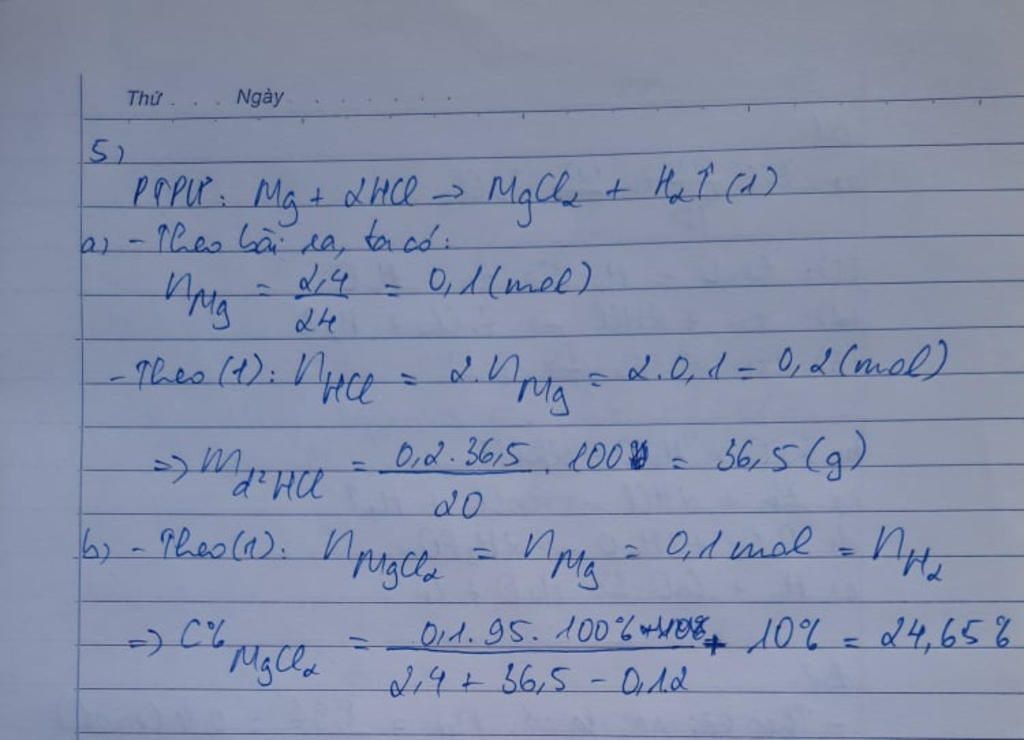 Thứ . . . Ngày . . . . . . .
5)
PTPƯ: Mg + 2HCl → MgCl₂ + H₂↑ (1)
a) - Theo bài ra, ta có:
n_Mg = 2,4/24 = 0,1 (mol)
- Theo (1): n_HCl = 2.n_Mg = 2.0,1 = 0,2 (mol)
=> m_d²HCl = 0,2.36,5/20 . 100 = 36,5 (g)
b) - Theo (1): n_MgCl₂ = n_Mg = 0,1 mol = n_H₂
=> C%_MgCl₂ = 0,1.95.100%/2,4 + 36,5 - 0,1.2 + 10% = 24,65%